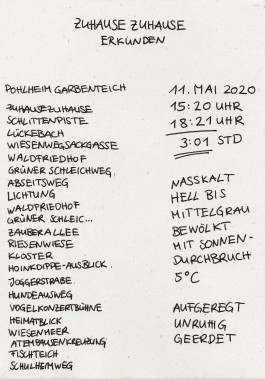 ZUHAUSE ZUHAUSE
ERKUNDEN
POHLHEIM GARBENTEICH
11. MAI 2020
ZUHAUSEZUHAUSE
15:20 UHR
SCHLITTENPISTE
18:21 UHR
LÜCKEBACH
WIESENWEGSACKGASSE
3:01 STD
WALDFRIEDHOF
GRÜNER SCHLEICHWEG,
ABSEITSWEG
LICHTUNG
WALDFRIEDHOF
GRÜNER SCHLEIC...
ZAUBERALLEE
RIESENWIESE
KLOSTER
HOINKDIPPE-AUSBLICK
JOGGERSTRAßE
HUNDEAUSWEG
VOGELKONZERTBÜHNE
HEIMATBLICK
WIESENMEER
ATEMPAUSENKREUZUNG
FISCHTEICH
SCHULHEIMWEG
NASSKALT
HELL BIS
MITTELGRAU
BEWÖLKT
MIT SONNEN-
DURCHBRUCH
5°C
AUFGEREGT
UNRUHIG
GEERDET